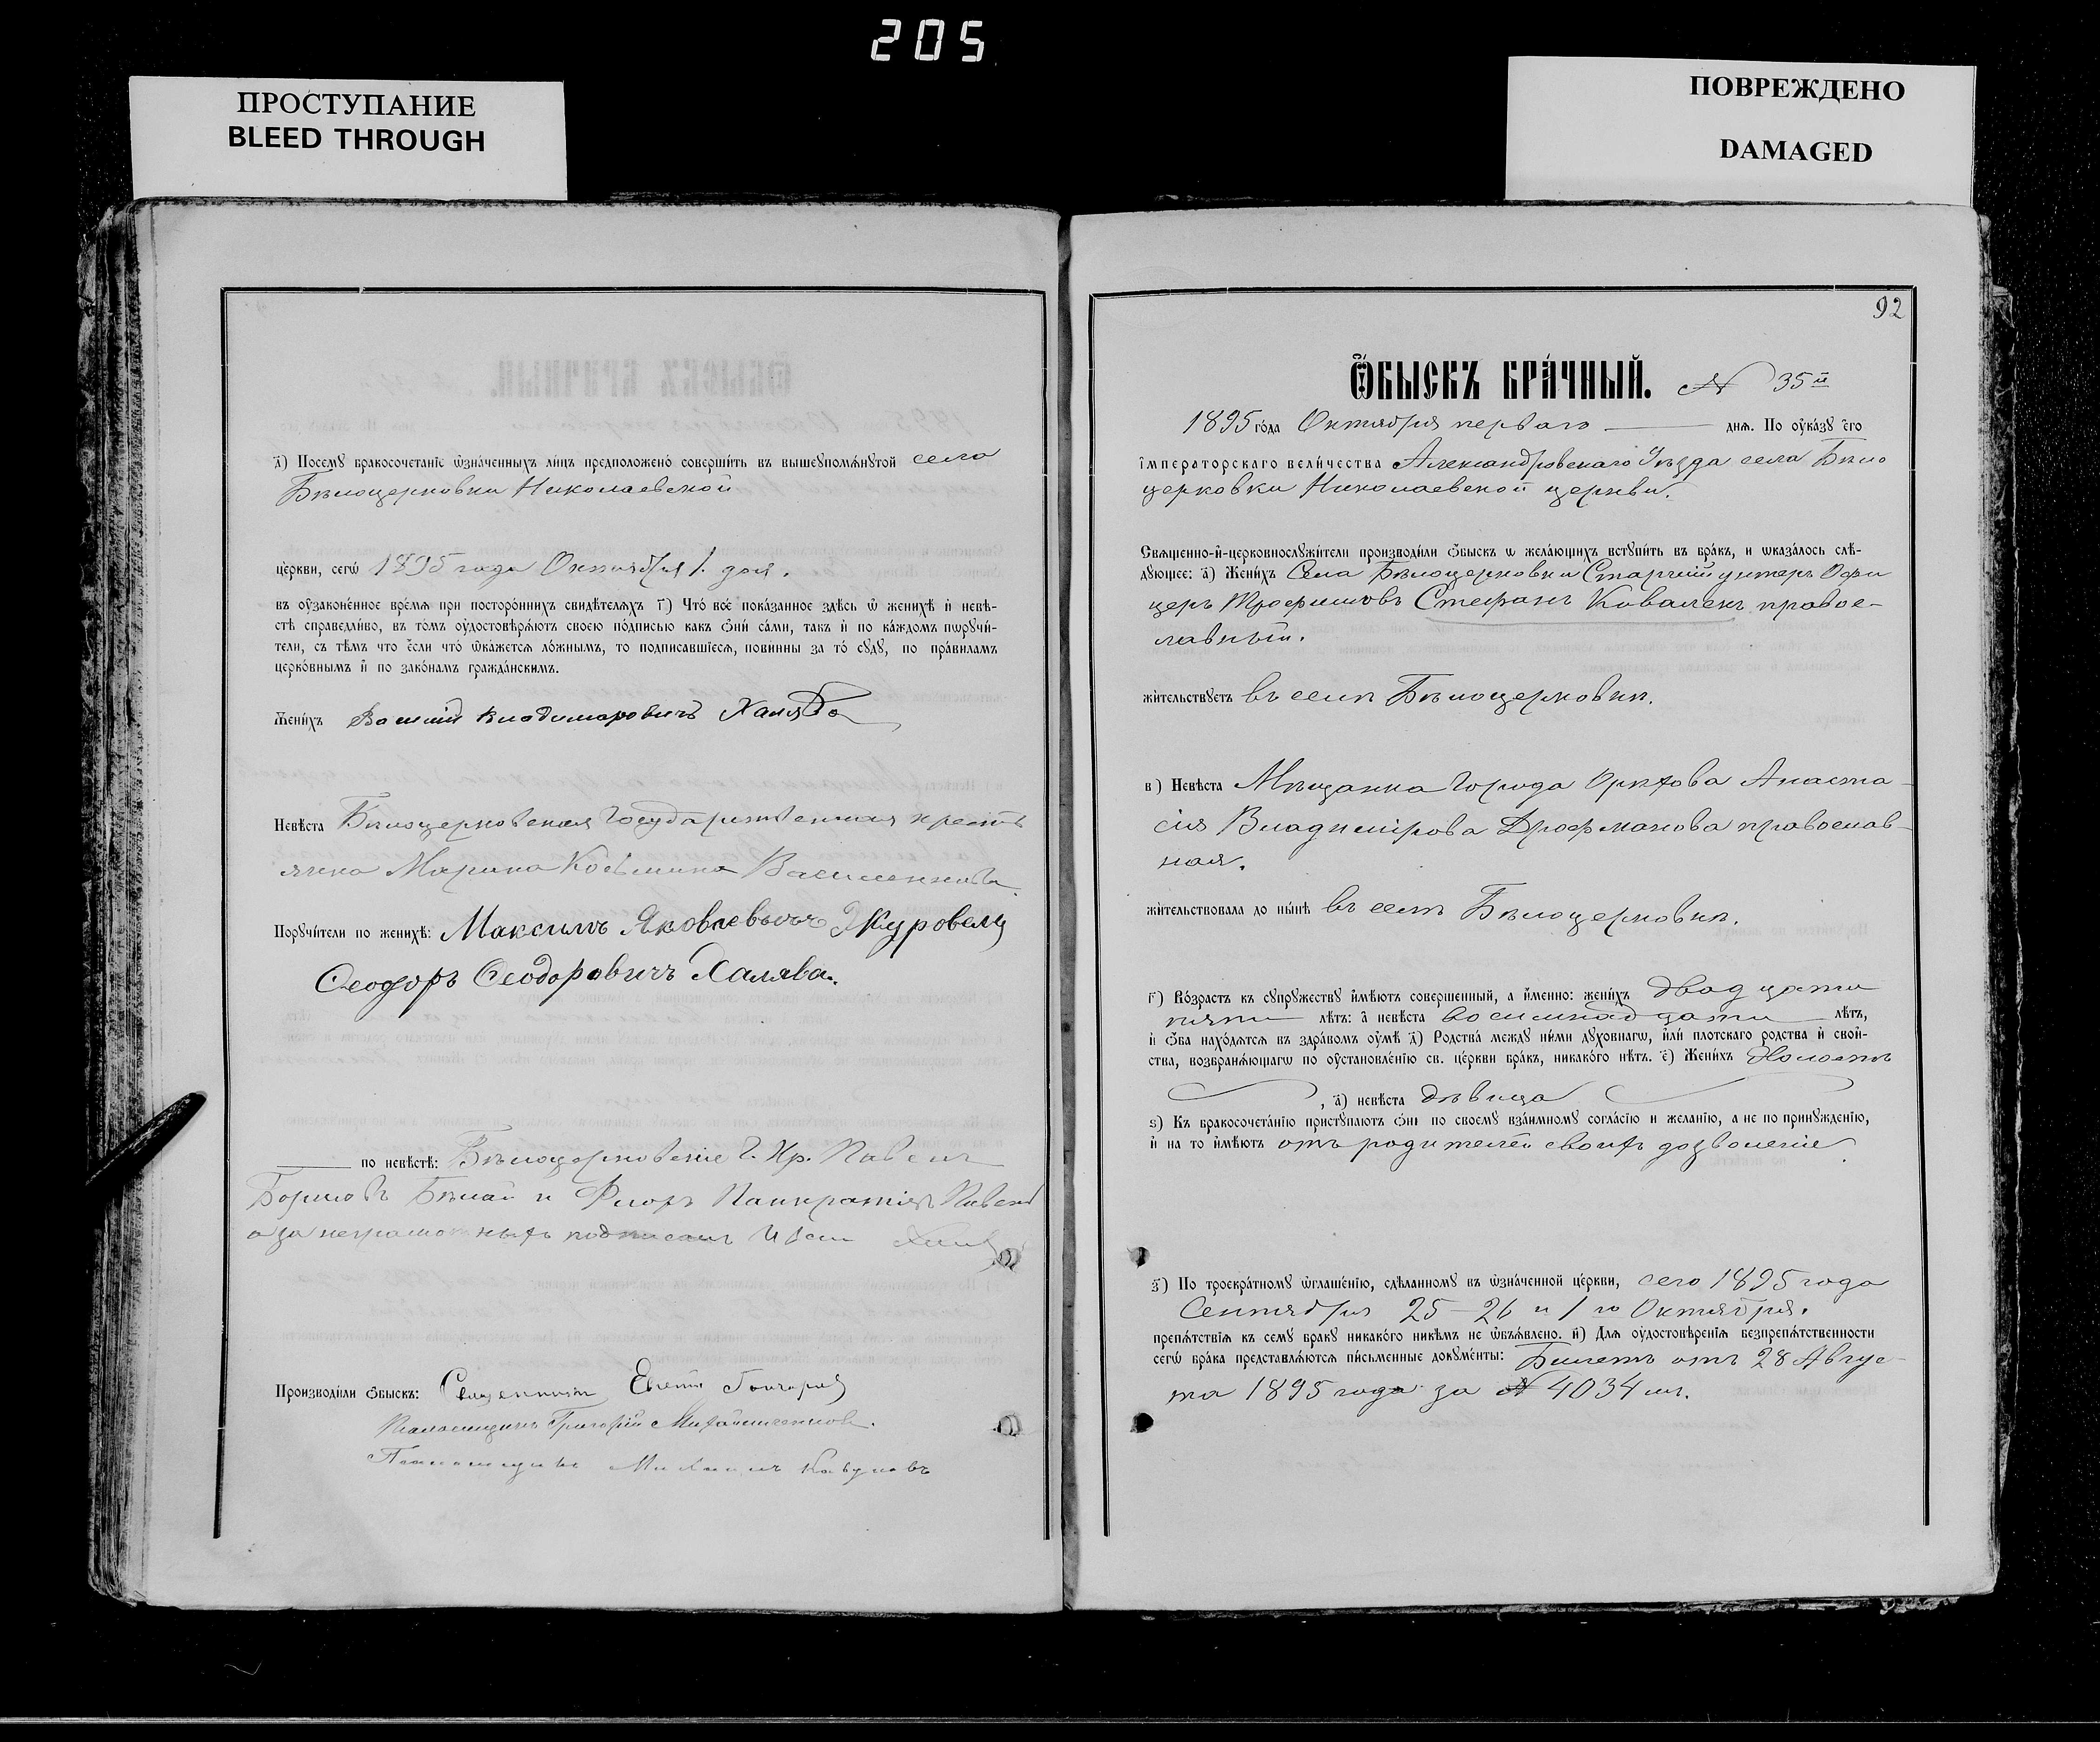 205
ПРОСТУПАНИЕ
BLEED THROUGH
ПОВРЕЖДЕНО
DAMAGED
а҃) Посемꙋ бракосочетанїе ѡ҆зна́ченныхъ ли́цъ предположено̀ соверши́ть въ вышеꙋпомѧ́нꙋтой села
Бѣлоцерковки Николаевской
це́ркви, сегѡ̀ 1895 года Октября 1. дня.
въ оу҆зако́ненное вре́мѧ при посторо́ннихъ свидѣ́телѧхъ г҃) Что́ всѐ пока́занное здѣ́сь ѡ҆ женихѣ̀ и҆ невѣ́-
стѣ справедли́во, въ то́мъ оу҆достовѣрѧ́ютъ свое́ю по́дписью какъ ѻ҆ни́ са́ми, такъ и҆ по ка́ждомъ порꙋчи́-
тели, съ тѣ́мъ что є҆́сли что́ ѡ҆ка́жетсѧ ло́жнымъ, то подписа́вшїесѧ, пови́нны за то́ сꙋдꙋ̀, по пра́виламъ
церко́внымъ и҆ по зако́намъ гражда́нскимъ.
Жени́хъ Василий Владимировичъ Халява
Невѣ́ста Бѣлоцерковская Государственная крестъ
янка Марина Косьмина Василенкова
Порꙋчи́тели по женихѣ̀: Максимъ Яковлевичъ Журовель
Ѳеодоръ Ѳеодоровичъ Халява.
по невѣ́стѣ: Бѣлоцерковскіе Г. Кр. Павелъ
Борисовъ Бѣлай и Флоръ Панкратіевъ
а за неграмотныхъ подписалъ Иван
Производи́ли ѻ҆́быскъ: Священникъ
Псаломщикъ Григорій Михайличенковъ.
Псаломщикъ Михаилъ Кавуновъ
92
Ѻ҆́БЫСКЪ БРА́ЧНЫЙ. № 35й
1895 го́да Октября перваго днѧ. По оу҆ка́зꙋ є҆гѡ̀
і҆мператорскаго вели́чества Александровскаго Уѣзда села Бѣло
церковки Николаевской церкви.
Свѧще́нно-и҆-церковнослꙋжи́тели производи́ли ѻ҆́быскъ ѡ҆ жела́ющихъ встꙋпи́ть въ бра́къ, и ѡ҆каза́лось слѣ́-
дꙋющее: а҃) Жени́хъ Села Бѣлоцерковки Старшій унтеръ Офи
церъ Трофимовъ Стефанъ Коваленъ правос-
лавный.
жи́тельствꙋетъ въ селѣ Бѣлоцерковкѣ.
в҃) Невѣ́ста Мѣщанка города Орѣхова Анаста-
сія Владимірова Дрофманова православ-
ная.
жи́тельствовала до ны́нѣ въ селѣ Бѣлоцерковкѣ.
г҃) Во́зрастъ къ сꙋпрꙋ́жествꙋ и҆мѣ́ютъ соверше́нный, а и҆́менно: жени́хъ двадцати
пяти лѣ́тъ: а҆ невѣ́ста восемнадцати лѣ́тъ,
и҆ ѻ҆́ба нахо́дѧтсѧ въ здра́вомъ оу҆мѣ̀ д҃) Родства̀ ме́ждꙋ ни́ми дꙋхо́внагѡ, и҆лѝ пло́тскаго родства̀ и҆ свой-
ства̀, возбранѧ́ющагѡ по оу҆становле́нїю св. це́ркви бра́къ, никако́го нѣ́тъ. є҃) Жени́хъ Холостъ
, а҃) невѣ́ста дѣвица
ѕ҃) Къ бракосочета́нїю пристꙋпа́ютъ ѻ҆нѝ по своемꙋ̀ взаи́мномꙋ согла́сїю и жела́нїю, а не по принꙋжде́нїю,
и҆ на то и҆мѣ́ютъ отъ родителей своихъ дозволеніе
з҃) По троекра́тномꙋ ѡ҆глаше́нїю, сдѣ́ланномꙋ въ ѡ҆зна́ченной це́ркви, сего 1895 года
Сентября 25 - 26 и 1 го Октября.
препѧ́тствїѧ къ семꙋ̀ бра́кꙋ никако́го никѣ́мъ не ѡ҆б̾ѧ́влено. и҃) Длѧ оу҆достовѣ́ренїѧ безпрепѧ́тственности
сегѡ̀ бра́ка представлѧ́ютсѧ пи́сьменные докꙋме́нты: Билетъ отъ 28 Авгус-
та 1895 года за № 4034 мъ.